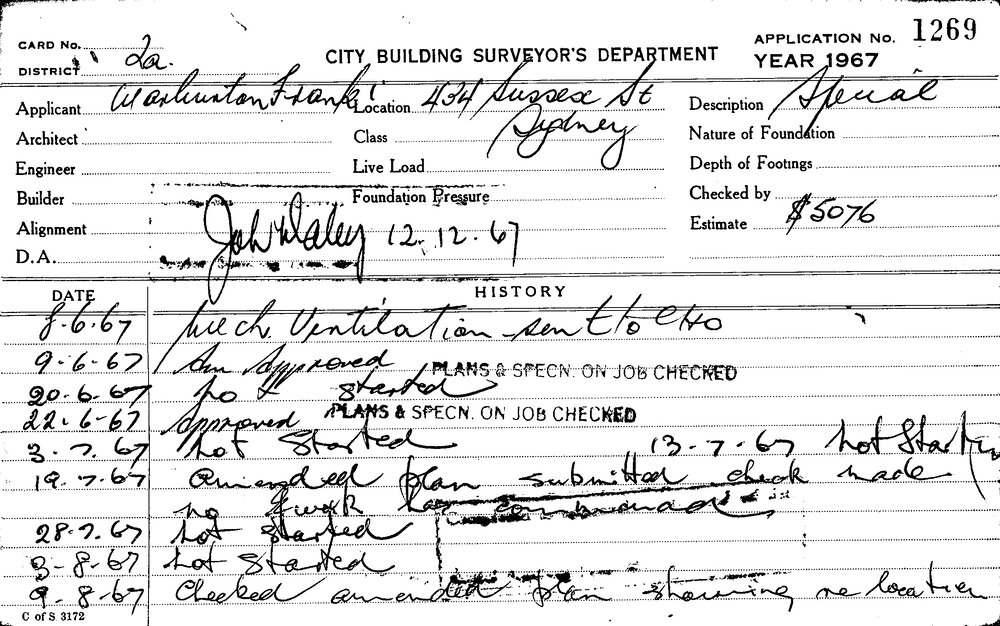 CARD No. 2a.
DISTRICT
CITY BUILDING SURVEYOR'S DEPARTMENT
APPLICATION No. 1269
YEAR 1967
Applicant Warburton Franki Location 434 Sussex St Description Special
Architect Class Sydney Nature of Foundation
Engineer Live Load Depth of Footings
Builder Foundation Pressure Checked by
Alignment John Daley 12.12.67 Estimate $5076
D.A.
DATE HISTORY
8.6.67 Mech. Ventilation sent to CHO
9-6-67 Approved PLANS & SPECN. ON JOB CHECKED
20.6.67 started
22.6-67 Approved PLANS & SPECN. ON JOB CHECKED
3.7.67 not started 13-7-67 not started
19.7.67 Amended plan submitted check made
no work has commenced
28.7.67 not started
3-8-67 not started
9.8-67 Checked amended plan showing re location
C of S 3172